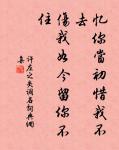 忆你當初惜我不
去
傷我如今留你不
住
許左之失調名詞典網
集